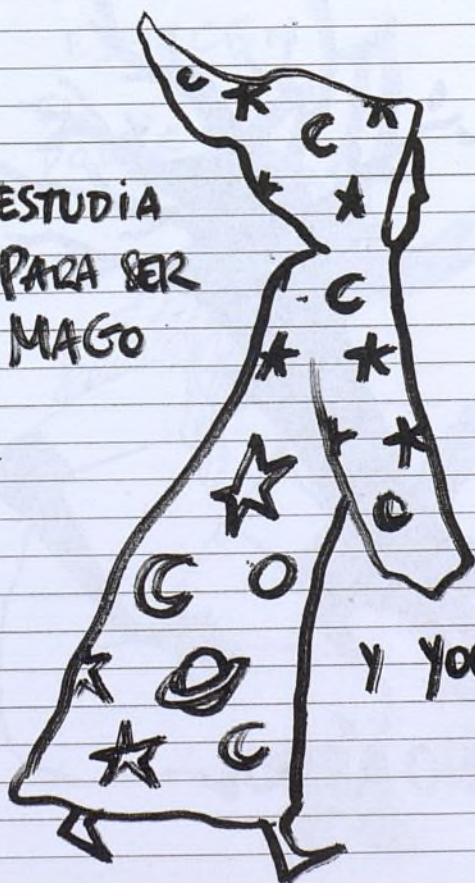 ESTUDiA
PARA SER
MAGO
Y YO